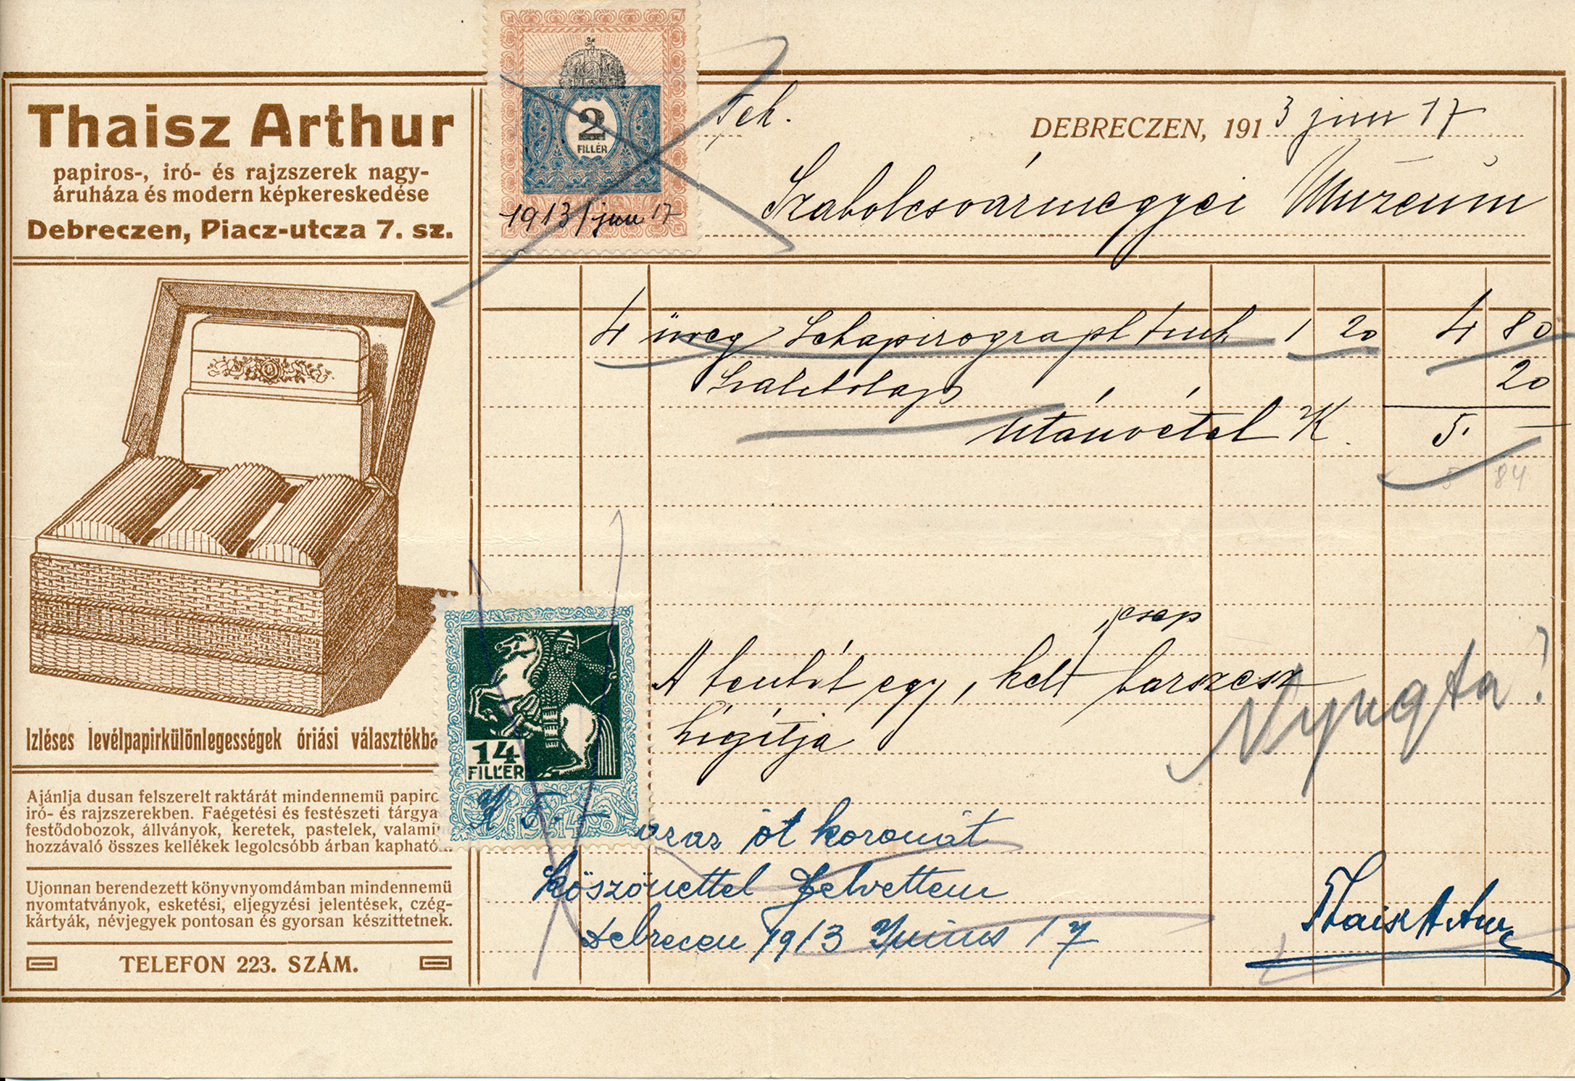 Thaisz Arthur
papiros-, iró- és rajzszerek nagy-
áruháza és modern képkereskedése
Debreczen, Piacz-utcza 7. sz.
2
FILLÉR
1913 jun 17
Tek.
DEBRECZEN, 1913 jun 17
Szabolcsvármegyei Múzeum
4 üveg Schapirograph tinta 1 20 4 80
20
Utánvétel K. 5. —
5 84
Izléses levélpapirkülönlegességek óriási választékba
14
FILLÉR
K 5.–
csap
A tentát egy, kelt borszesz
higítja
Nyugta!
Ajánlja dusan felszerelt raktárát mindennemü papiro
iró- és rajzszerekben. Faégetési és festészeti tárgya
festődobozok, állványok, keretek, pastelek, valami
hozzávaló összes kellékek legolcsóbb árban kapható
azaz öt koronát
köszönettel felvettem
Debrecen 1913 Junius 17
Thaisz Arthur
Ujonnan berendezett könyvnyomdámban mindennemü
nyomtatványok, esketési, eljegyzési jelentések, czég-
kártyák, névjegyek pontosan és gyorsan készittetnek.
TELEFON 223. SZÁM.